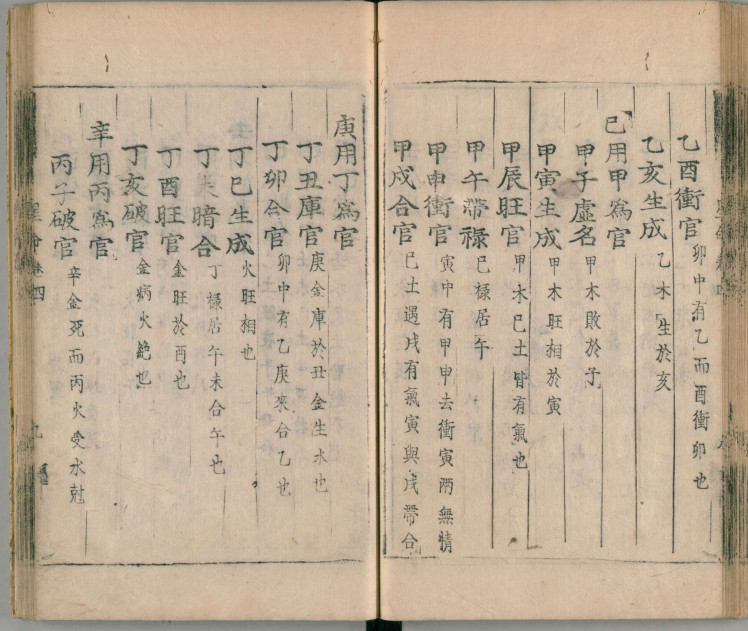 乙酉衝官 卯中有乙而酉衝卯也
乙亥生成 乙木生於亥
己用甲爲官
甲子虛名 甲木敗於子
甲寅生成 甲木旺相於寅
甲辰旺官 甲木巳土皆有氣也
甲午帶祿 巳祿居午
甲申衝官 寅中有甲申去衝寅兩無情
甲戌合官 巳土遇戌有氣寅與戌帶合
庚用丁爲官
丁丑庫官 庚金庫於丑金生水也
丁卯合官 卯中有乙庚來合乙也
丁巳生成 火旺相也
丁未暗合 丁祿居午未合午也
丁酉旺官 金旺於酉也
丁亥破官 金病火絶也
辛用丙爲官
丙子破官 辛金死而丙火受水尅
星命卷四
九